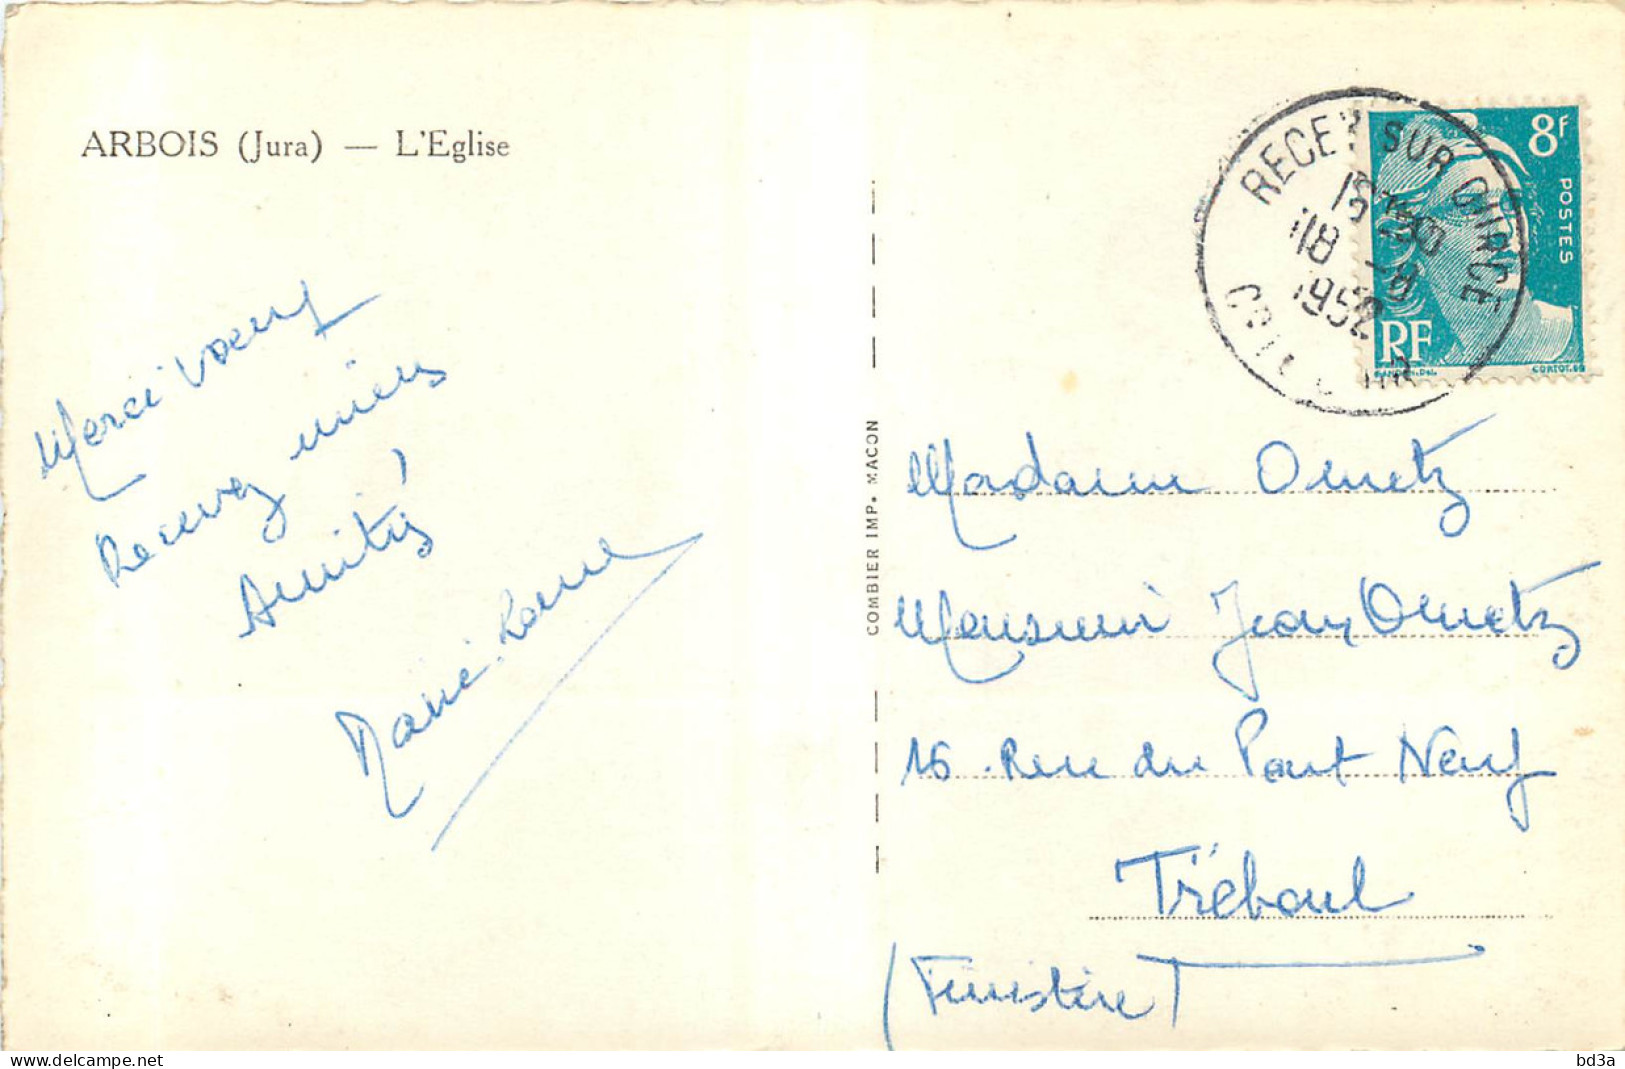 ARBOIS (Jura) — L'Eglise
Merci voeux
Recevez miens
Amitiés
COMBIER IMP. MACON
RECEY SUR OURCE
18 -8
1952
COTE D'OR
8F
POSTES
RF
Madame Ometz
Monsieur Jean Ometz
16 Rue du Pont Neuf
Tréboul
(Finistère)
bd3a